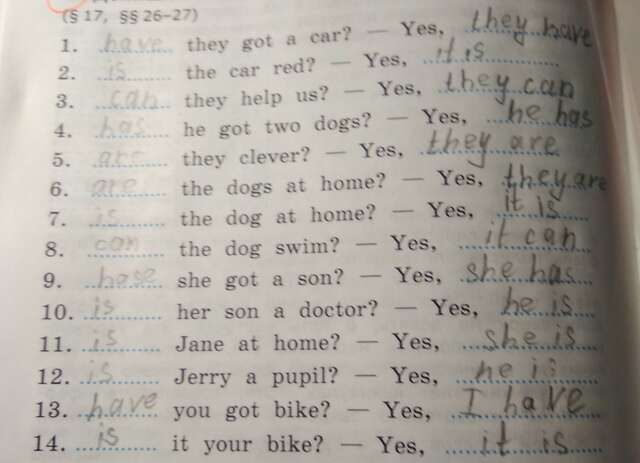 (§ 17, §§ 26–27)
1. have they got a car? — Yes, they have
2. is the car red? — Yes, it is
3. can they help us? — Yes, they can
4. has he got two dogs? — Yes, he has
5. are they clever? — Yes, they are
6. are the dogs at home? — Yes, they are
7. is the dog at home? — Yes, it is
8. can the dog swim? — Yes, it can
9. she got a son? — Yes, she has
10. is her son a doctor? — Yes, he is
11. is Jane at home? — Yes, she is
12. is Jerry a pupil? — Yes, he is
13. have you got bike? — Yes, I have
14. is it your bike? — Yes, it is